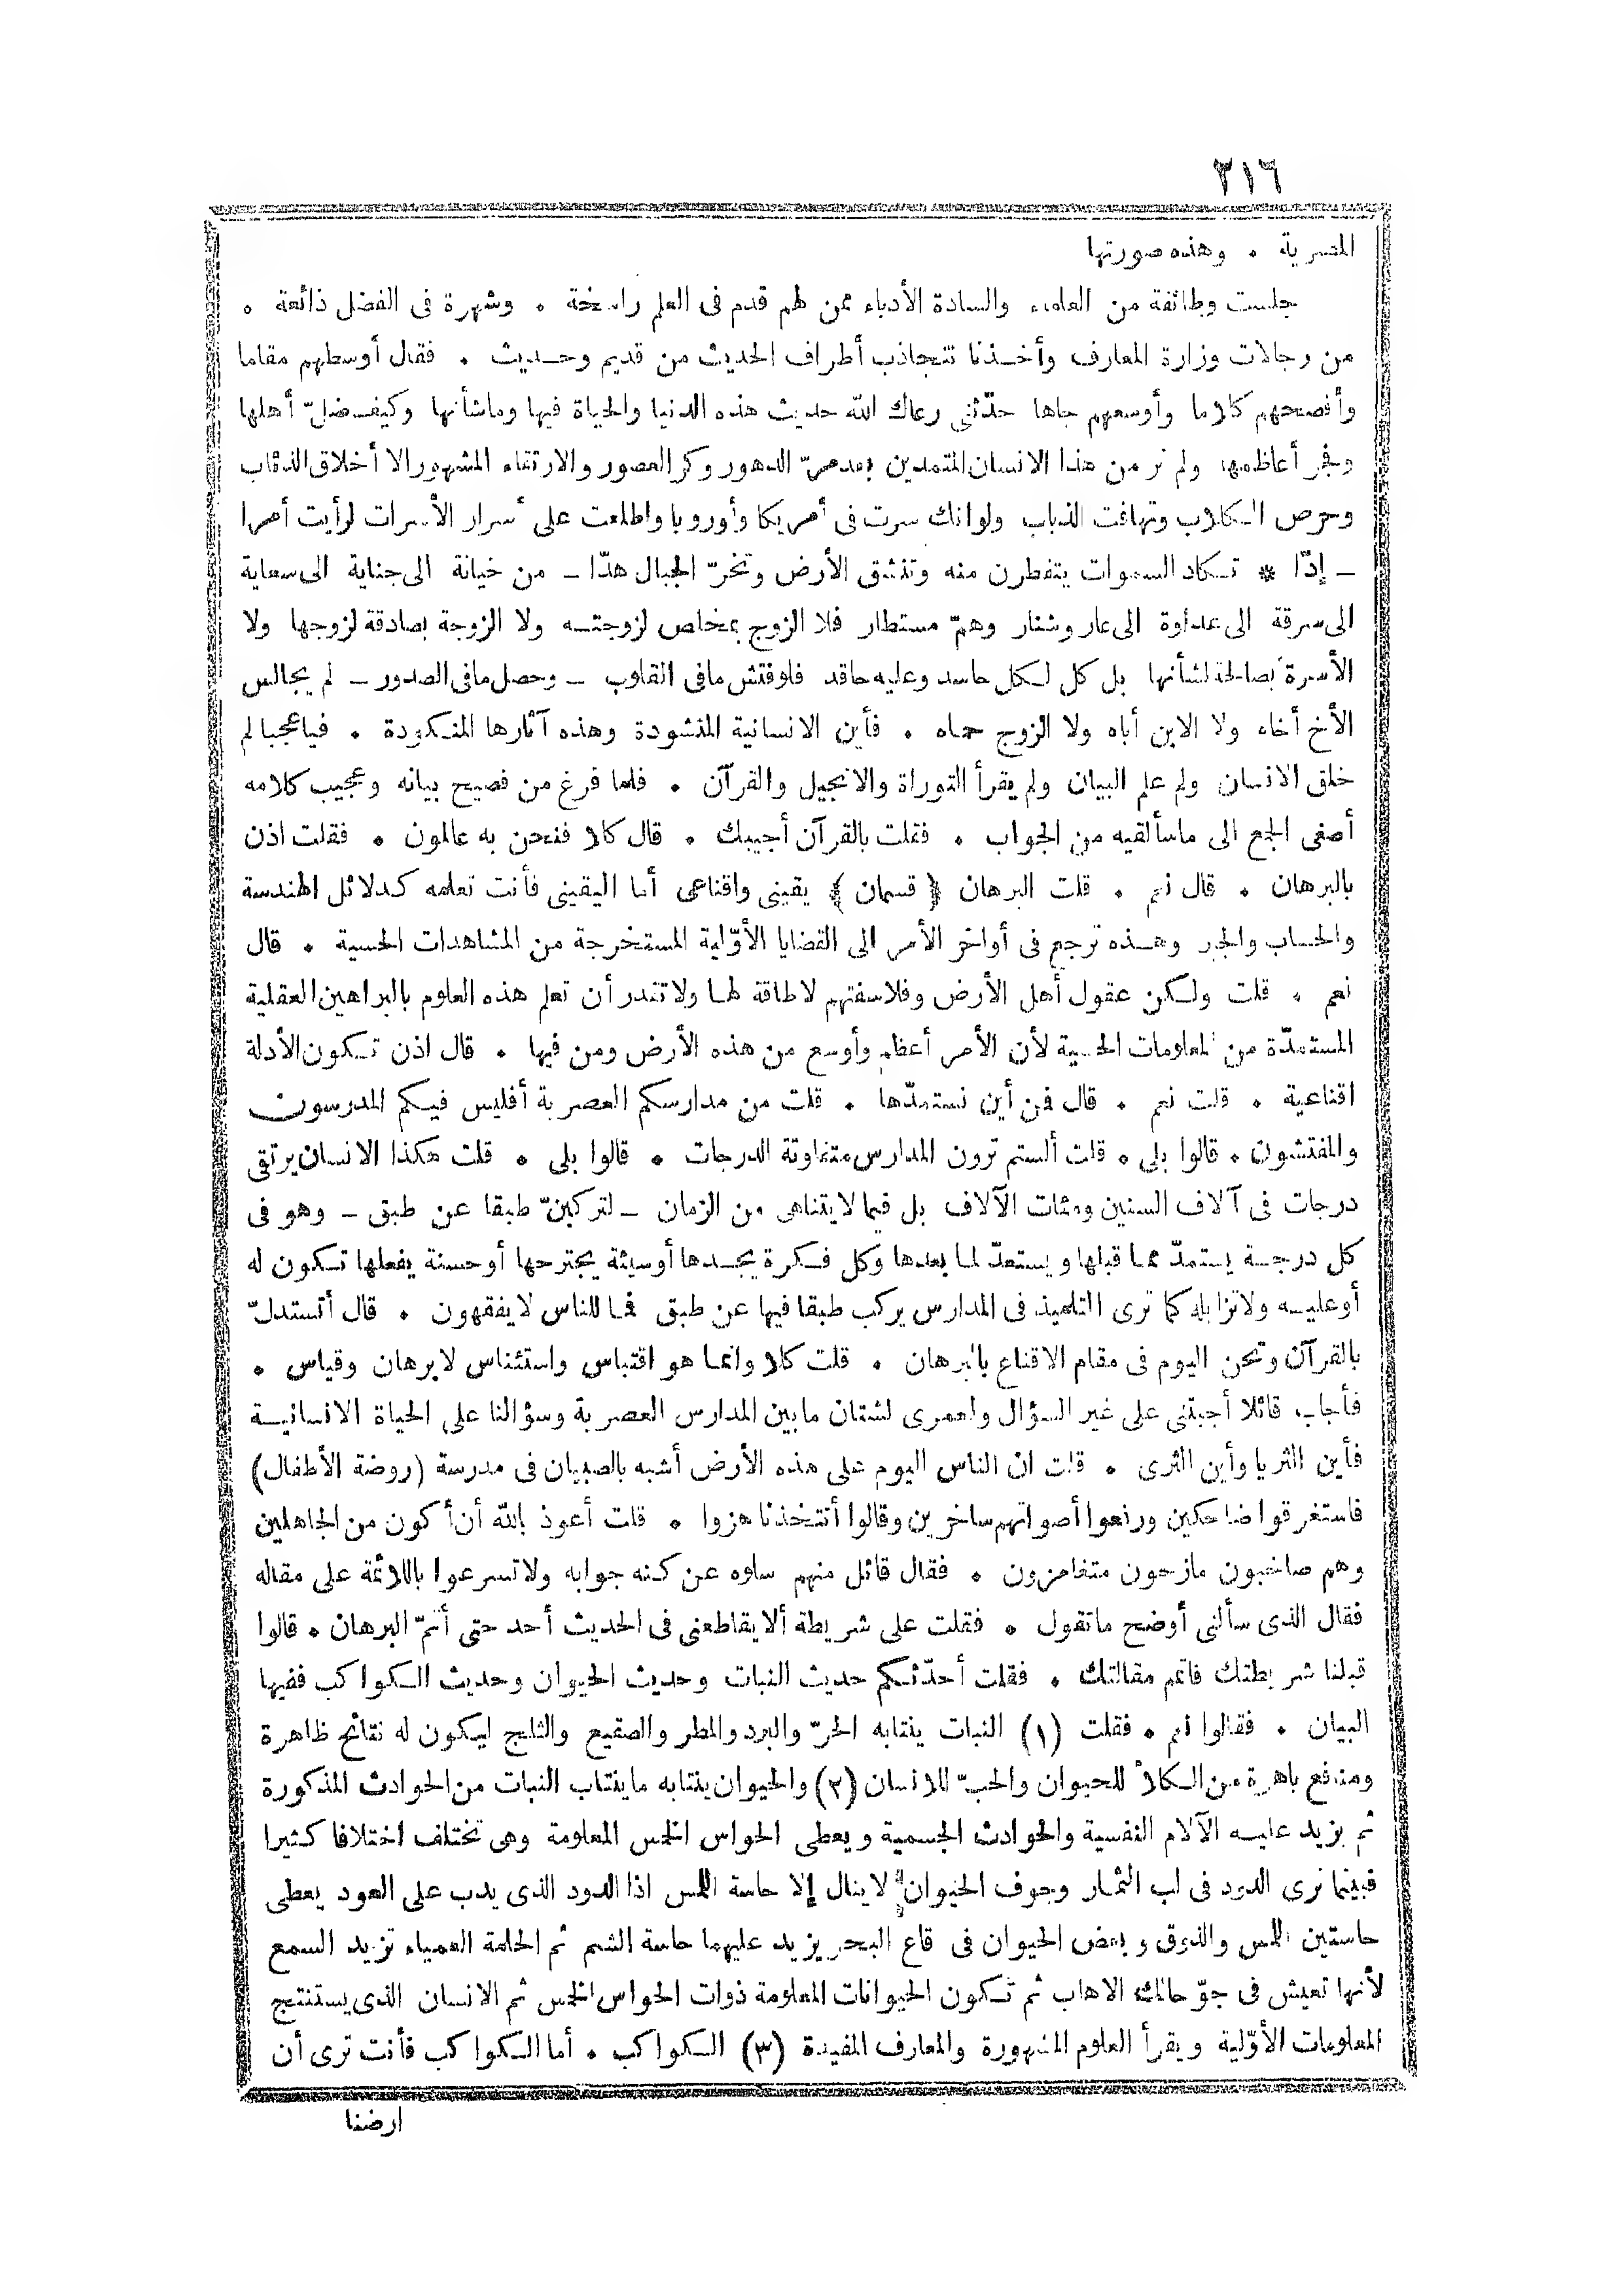 ٣١٦
المصرية . وهذه صورتها
جلست وطائفة من العلماء والسادة الأدباء ممن لهم قدم فى العلم راسخة . وشهرة فى الفضل ذائعة .
من رجالات وزارة المعارف وأخذنا نتجاذب أطراف الحديث من قديم وحديث . فقال أوسطهم مقاما
وأفصحهم كلاما وأوسعهم جاها حدّثنى رعاك الله حديث هذه الدنيا والحياة فيها وماشأنها وكيف ضلّ أهلها
وفجر أعاظمها ولم نر من هذا الانسان المتمدين بعد مرّ الدهور وكر العصور والارتقاء المشهور الا أخلاق الذئاب
وحرص الكلاب وتهافت الذباب ولوانك سرت فى أمريكا وأوروبا واطلعت على أسرار الأسرات لرأيت أمرا
ـ إدّا * تكاد السموات يتفطرن منه وتنشق الأرض وتخرّ الجبال هدّا ـ من خيانة الى جناية الى سعاية
الى سرقة الى عداوة الى عار وشنار وهمّ مستطار فلا الزوج بمخلص لزوجته ولا الزوجة بصادقة لزوجها ولا
الأسرة بصالحة لشأنها بل كل لكل حاسد وعليه حاقد فلو فتش مافى القلوب ـ وحصل مافى الصدور ـ لم يجالس
الأخ أخاه ولا الابن أباه ولا الزوج حماه . فأين الانسانية المنشودة وهذه آثارها المنكودة . فياعجبا لم
خلق الانسان ولم علم البيان ولم يقرأ التوراة والانجيل والقرآن . فلما فرغ من فصيح بيانه وعجيب كلامه
أصغى الجمع الى ماسألقيه من الجواب . فقلت بالقرآن أجيبك . قال كلا فنحن به عالمون . فقلت اذن
بالبرهان . قال نعم . قلت البرهان ﴿ قسمان ﴾ يقينى واقناعى أما اليقينى فأنت تعلمه كدلائل الهندسة
والحساب والجبر وهذه ترجع فى أواخر الأمر الى القضايا الأوّلية المستخرجة من المشاهدات الحسية . قال
نعم . قلت ولكن عقول أهل الأرض وفلاسفتهم لاطاقة لها ولاتقدر أن تعلم هذه العلوم بالبراهين العقلية
المستمدّة من المعلومات الحسية لأن الأمر أعظم وأوسع من هذه الأرض ومن فيها . قال اذن تكون الأدلة
اقناعية . قلت نعم . قال فمن أين نستمدّها . قلت من مدارسكم العصرية أفليس فيكم المدرسون
والمفتشون . قالوا بلى . قلت ألستم ترون المدارس متفاوتة الدرجات . قالوا بلى . قلت هكذا الانسان يرتقى
درجات فى آلاف السنين ومئات الآلاف بل فيما لايتناهى من الزمان ـ لتركبنّ طبقا عن طبق ـ وهو فى
كل درجة يستمدّ مما قبلها ويستعدّ لما بعدها وكل فكرة يجدها أوسيئة يجترحها أوحسنة يفعلها تكون له
أوعليه ولاتزايله كما ترى التلميذ فى المدارس يركب طبقا فيها عن طبق فما للناس لايفقهون . قال أتستدلّ
بالقرآن ونحن اليوم فى مقام الاقناع بالبرهان . قلت كلا وانما هو اقتباس واستئناس لابرهان وقياس .
فأجاب قائلا أجبتنى على غير السؤال ولعمرى لشتان مابين المدارس العصرية وسؤالنا على الحياة الانسانية
فأين الثريا وأين الثرى . قلت ان الناس اليوم على هذه الأرض أشبه بالصبيان فى مدرسة (روضة الأطفال)
فاستغرقوا ضاحكين ورفعوا أصواتهم ساخرين وقالوا أتتخذنا هزوا . قلت أعوذ بالله أن أكون من الجاهلين
وهم صاخبون مازحون متغامزون . فقال قائل منهم سلوه عن كنه جوابه ولاتسرعوا باللائمة على مقاله
فقال الذى سألنى أوضح ماتقول . فقلت على شريطة ألايقاطعنى فى الحديث أحد حتى أتمّ البرهان . قالوا
قبلنا شريطتك فاتمم مقالتك . فقلت أحدّثكم حديث النبات وحديث الحيوان وحديث الكواكب ففيها
البيان . فقالوا نعم . فقلت (١) النبات ينتابه الحرّ والبرد والمطر والصقيع والثلج ليكون له نتائج ظاهرة
ومنافع باهرة من الكلأ للحيوان والحبّ للانسان (٢) والحيوان ينتابه ماينتاب النبات من الحوادث المذكورة
ثم يزيد عليه الآلام النفسية والحوادث الجسمية ويعطى الحواس الخمس المعلومة وهى تختلف اختلافا كثيرا
فبينما نرى الدود فى لب الثمار وجوف الحيوان لاينال إلا حاسة اللمس اذا الدود الذى يدب على العود يعطى
حاستين اللمس والذوق وبعض الحيوان فى قاع البحر يزيد عليهما حاسة الشم ثم الحلمة العمياء تزيد السمع
لأنها تعيش فى جوّ حالك الاهاب ثم تكون الحيوانات المعلومة ذوات الحواس الخمس ثم الانسان الذى يستنتج
المعلومات الأوّلية ويقرأ العلوم المشهورة والمعارف المفيدة (٣) الكواكب . أما الكواكب فأنت ترى أن
ارضنا